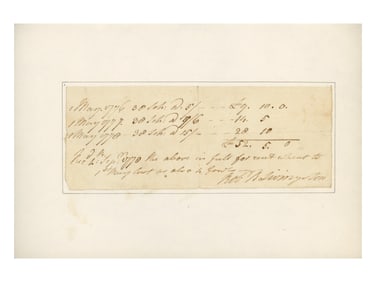 1 May 1776 38 Sch @ 5/ - - £9. 10. 0
1 May 1777. 38 Sch @ 7/6 - - 14. 5
1 May 1778 38 Sch @ 15/ - - 28 10
£52. 5. 0
Sepr 1778 the above in full for rent
May last as also
Robt R Livingston